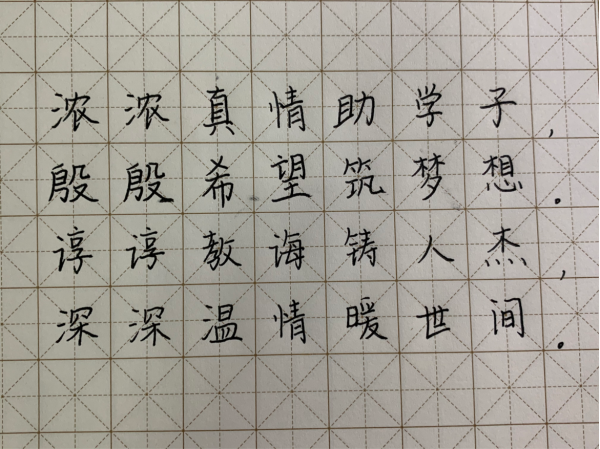 浓浓真情助学子,
殷殷希望筑梦想.
谆谆教诲铸人杰,
深深温情暖世间.